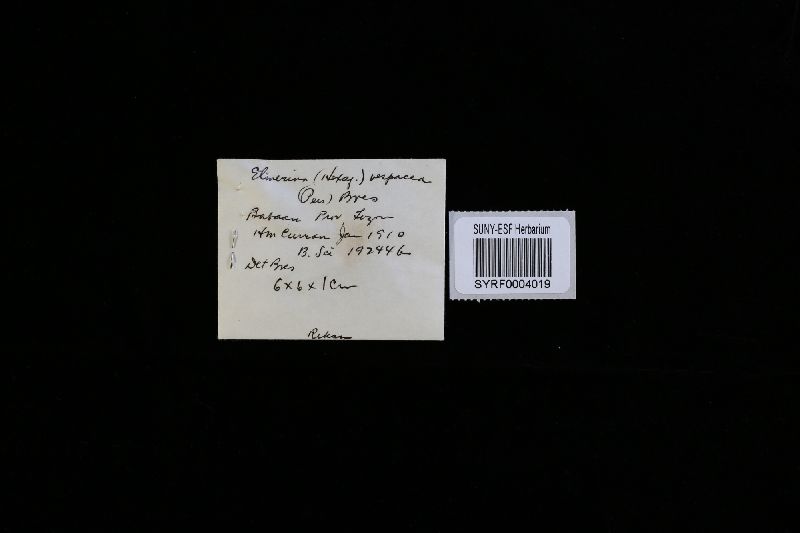 Elmerina (Hexag.) vespacea
(Pers) Bres
Bataan Prov Luzon
HM Curran Jan 1910
B. Sci 192446
Det Bres
6 x 6 x 1 Cm
SUNY-ESF Herbarium
SYRF0004019